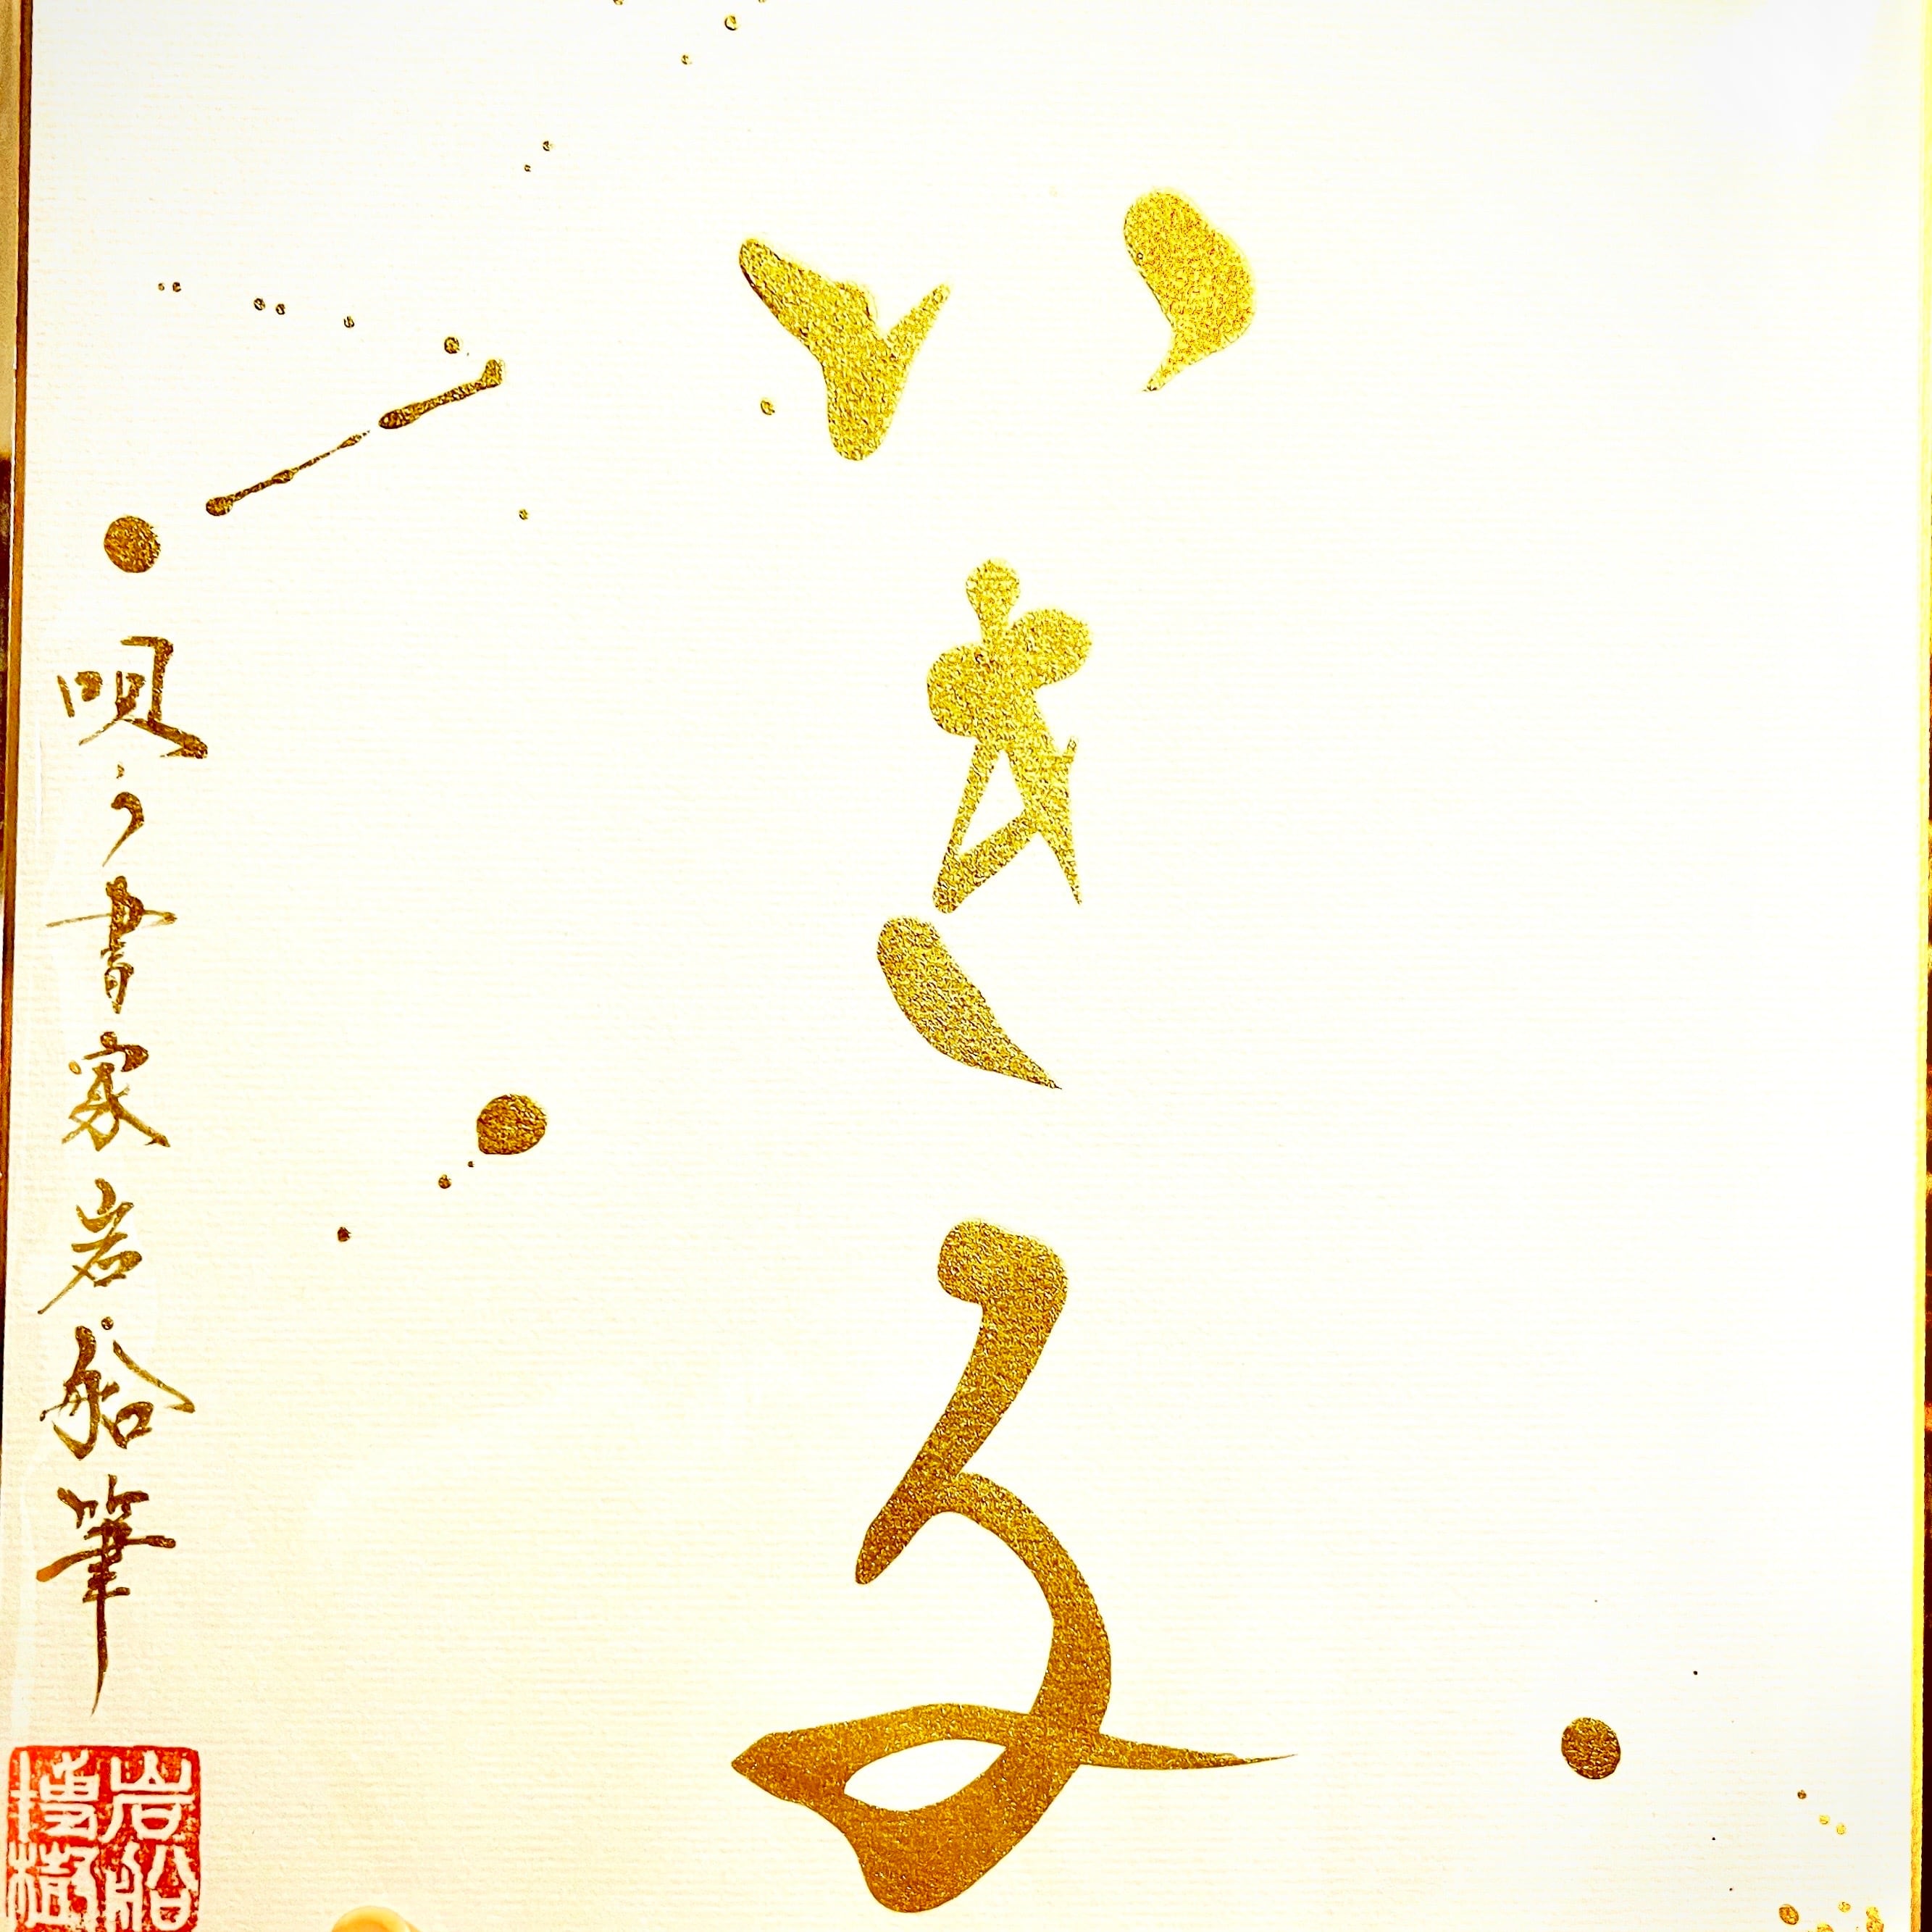 いきる
唄う書家岩船筆
岩船
博樹